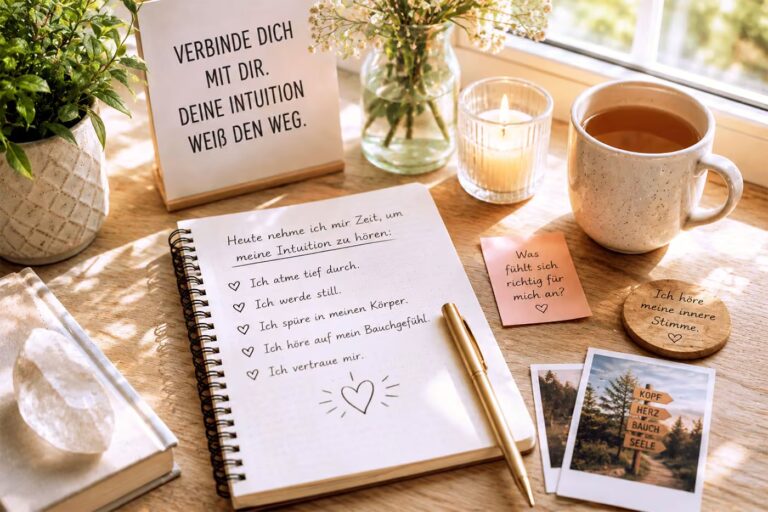 VERBINDE DICH
MIT DIR.
DEINE INTUITION
WEIß DEN WEG.
Heute nehme ich mir Zeit, um
meine Intuition zu hören:
Ich atme tief durch.
Ich werde still.
Ich spüre in meinen Körper.
Ich höre auf mein Bauchgefühl.
Ich vertraue mir.
Was
fühlt sich
richtig für
mich an?
Ich höre
meine innere
Stimme.
KOPF
HERZ
BAUCH
SEELE